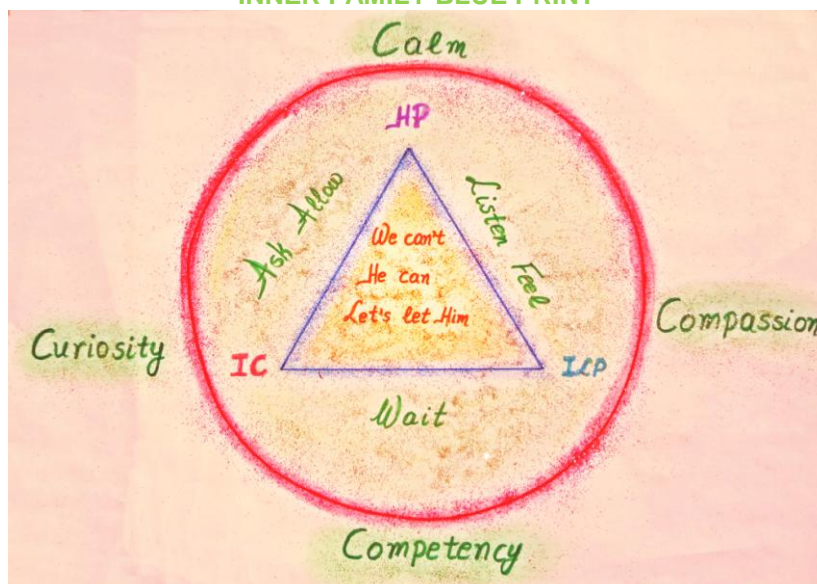 INNER FAMILY BLUE PRINT
Calm
HP
Ask Allow
Listen Feel
We can't
He can
Let's let Him
Curiosity
Compassion
IC
ILP
Wait
Competency